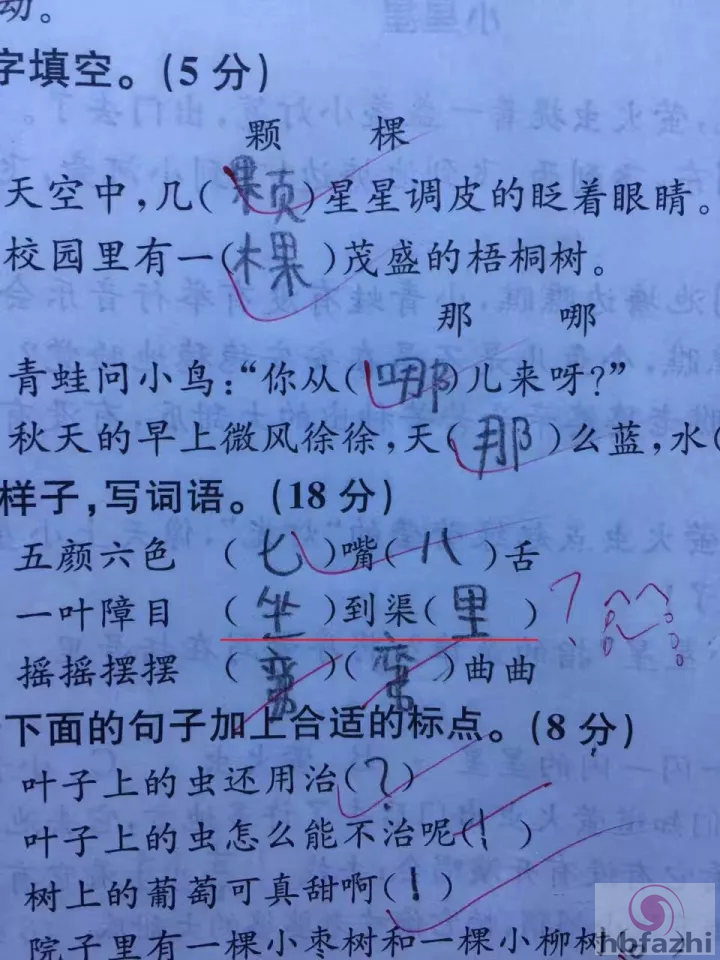 动。
字填空。(5分)
颗 棵
天空中,几(颗)星星调皮的眨着眼睛。
校园里有一(棵)茂盛的梧桐树。
那 哪
青蛙问小鸟:“你从(哪)儿来呀?”
秋天的早上微风徐徐,天(那)么蓝,水(
样子,写词语。(18分)
五颜六色 (七)嘴(八)舌
一叶障目 (坐)到渠(里)?
摇摇摆摆 (弯)(弯)曲曲
下面的句子加上合适的标点。(8分)
叶子上的虫还用治(?)
叶子上的虫怎么能不治呢(!)
树上的葡萄可真甜啊(!)
院子里有一棵小枣树和一棵小柳树(。)
hbfazhi